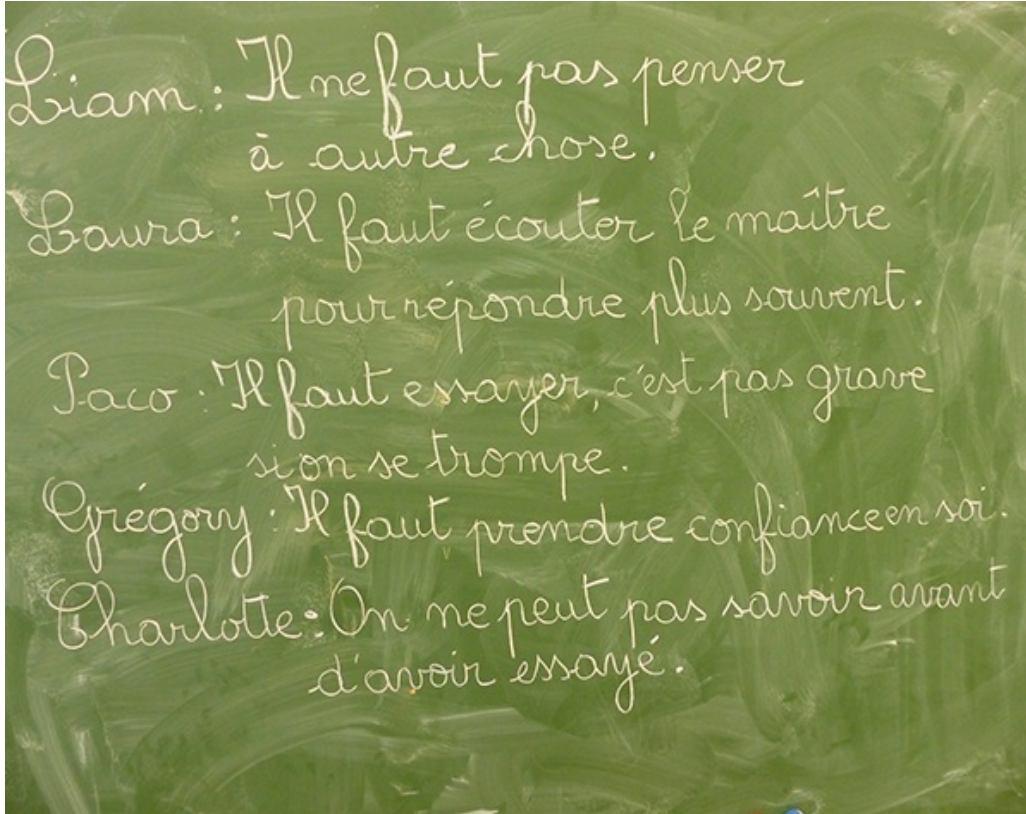 Liam : Il ne faut pas penser
à autre chose.
Laura : Il faut écouter le maître
pour répondre plus souvent.
Paco : Il faut essayer, c'est pas grave
si on se trompe.
Grégory : Il faut prendre confiance en soi.
Charlotte : On ne peut pas savoir avant
d'avoir essayé.